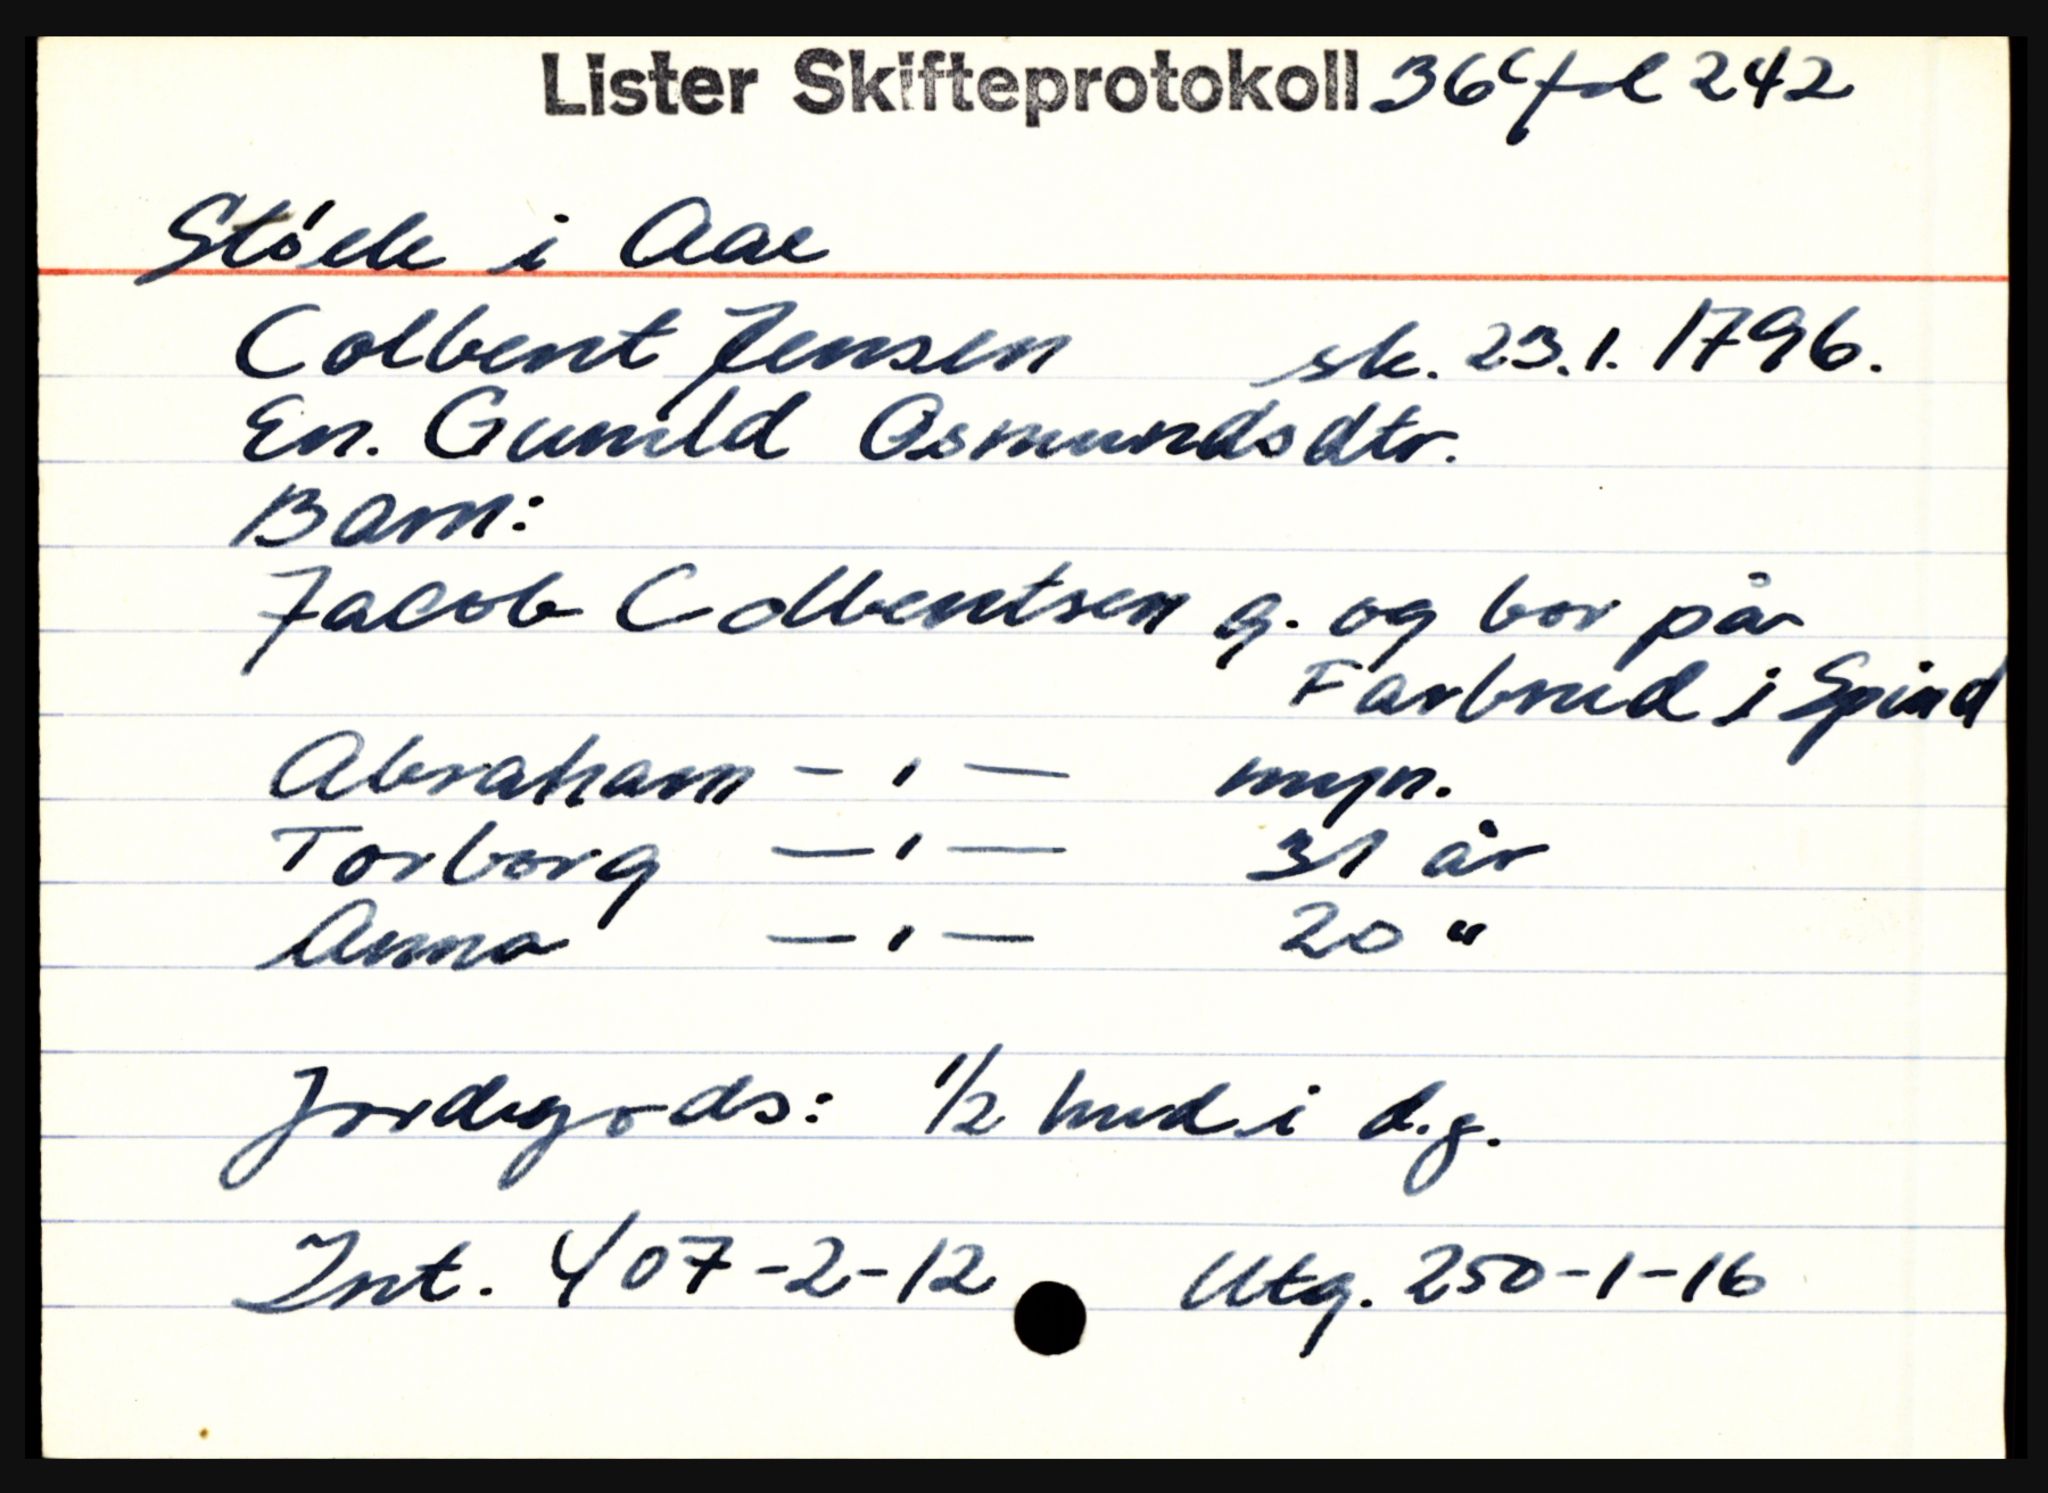 Lister Skifteprotokoll 36c fol 242
Støle i Aae
Colbent Jensen sk. 23.1. 1796.
En. Gunild Osmundsdtr.
Barn:
Jacob Colbentsen g. og bor på
Farbrud i Spind
Abraham — ' — myn.
Torborg — ' — 31 år
Anna — ' — 20 "
Jordegods: 1/2 hud i d.g.
Int. 407-2-12 Utg. 250-1-16